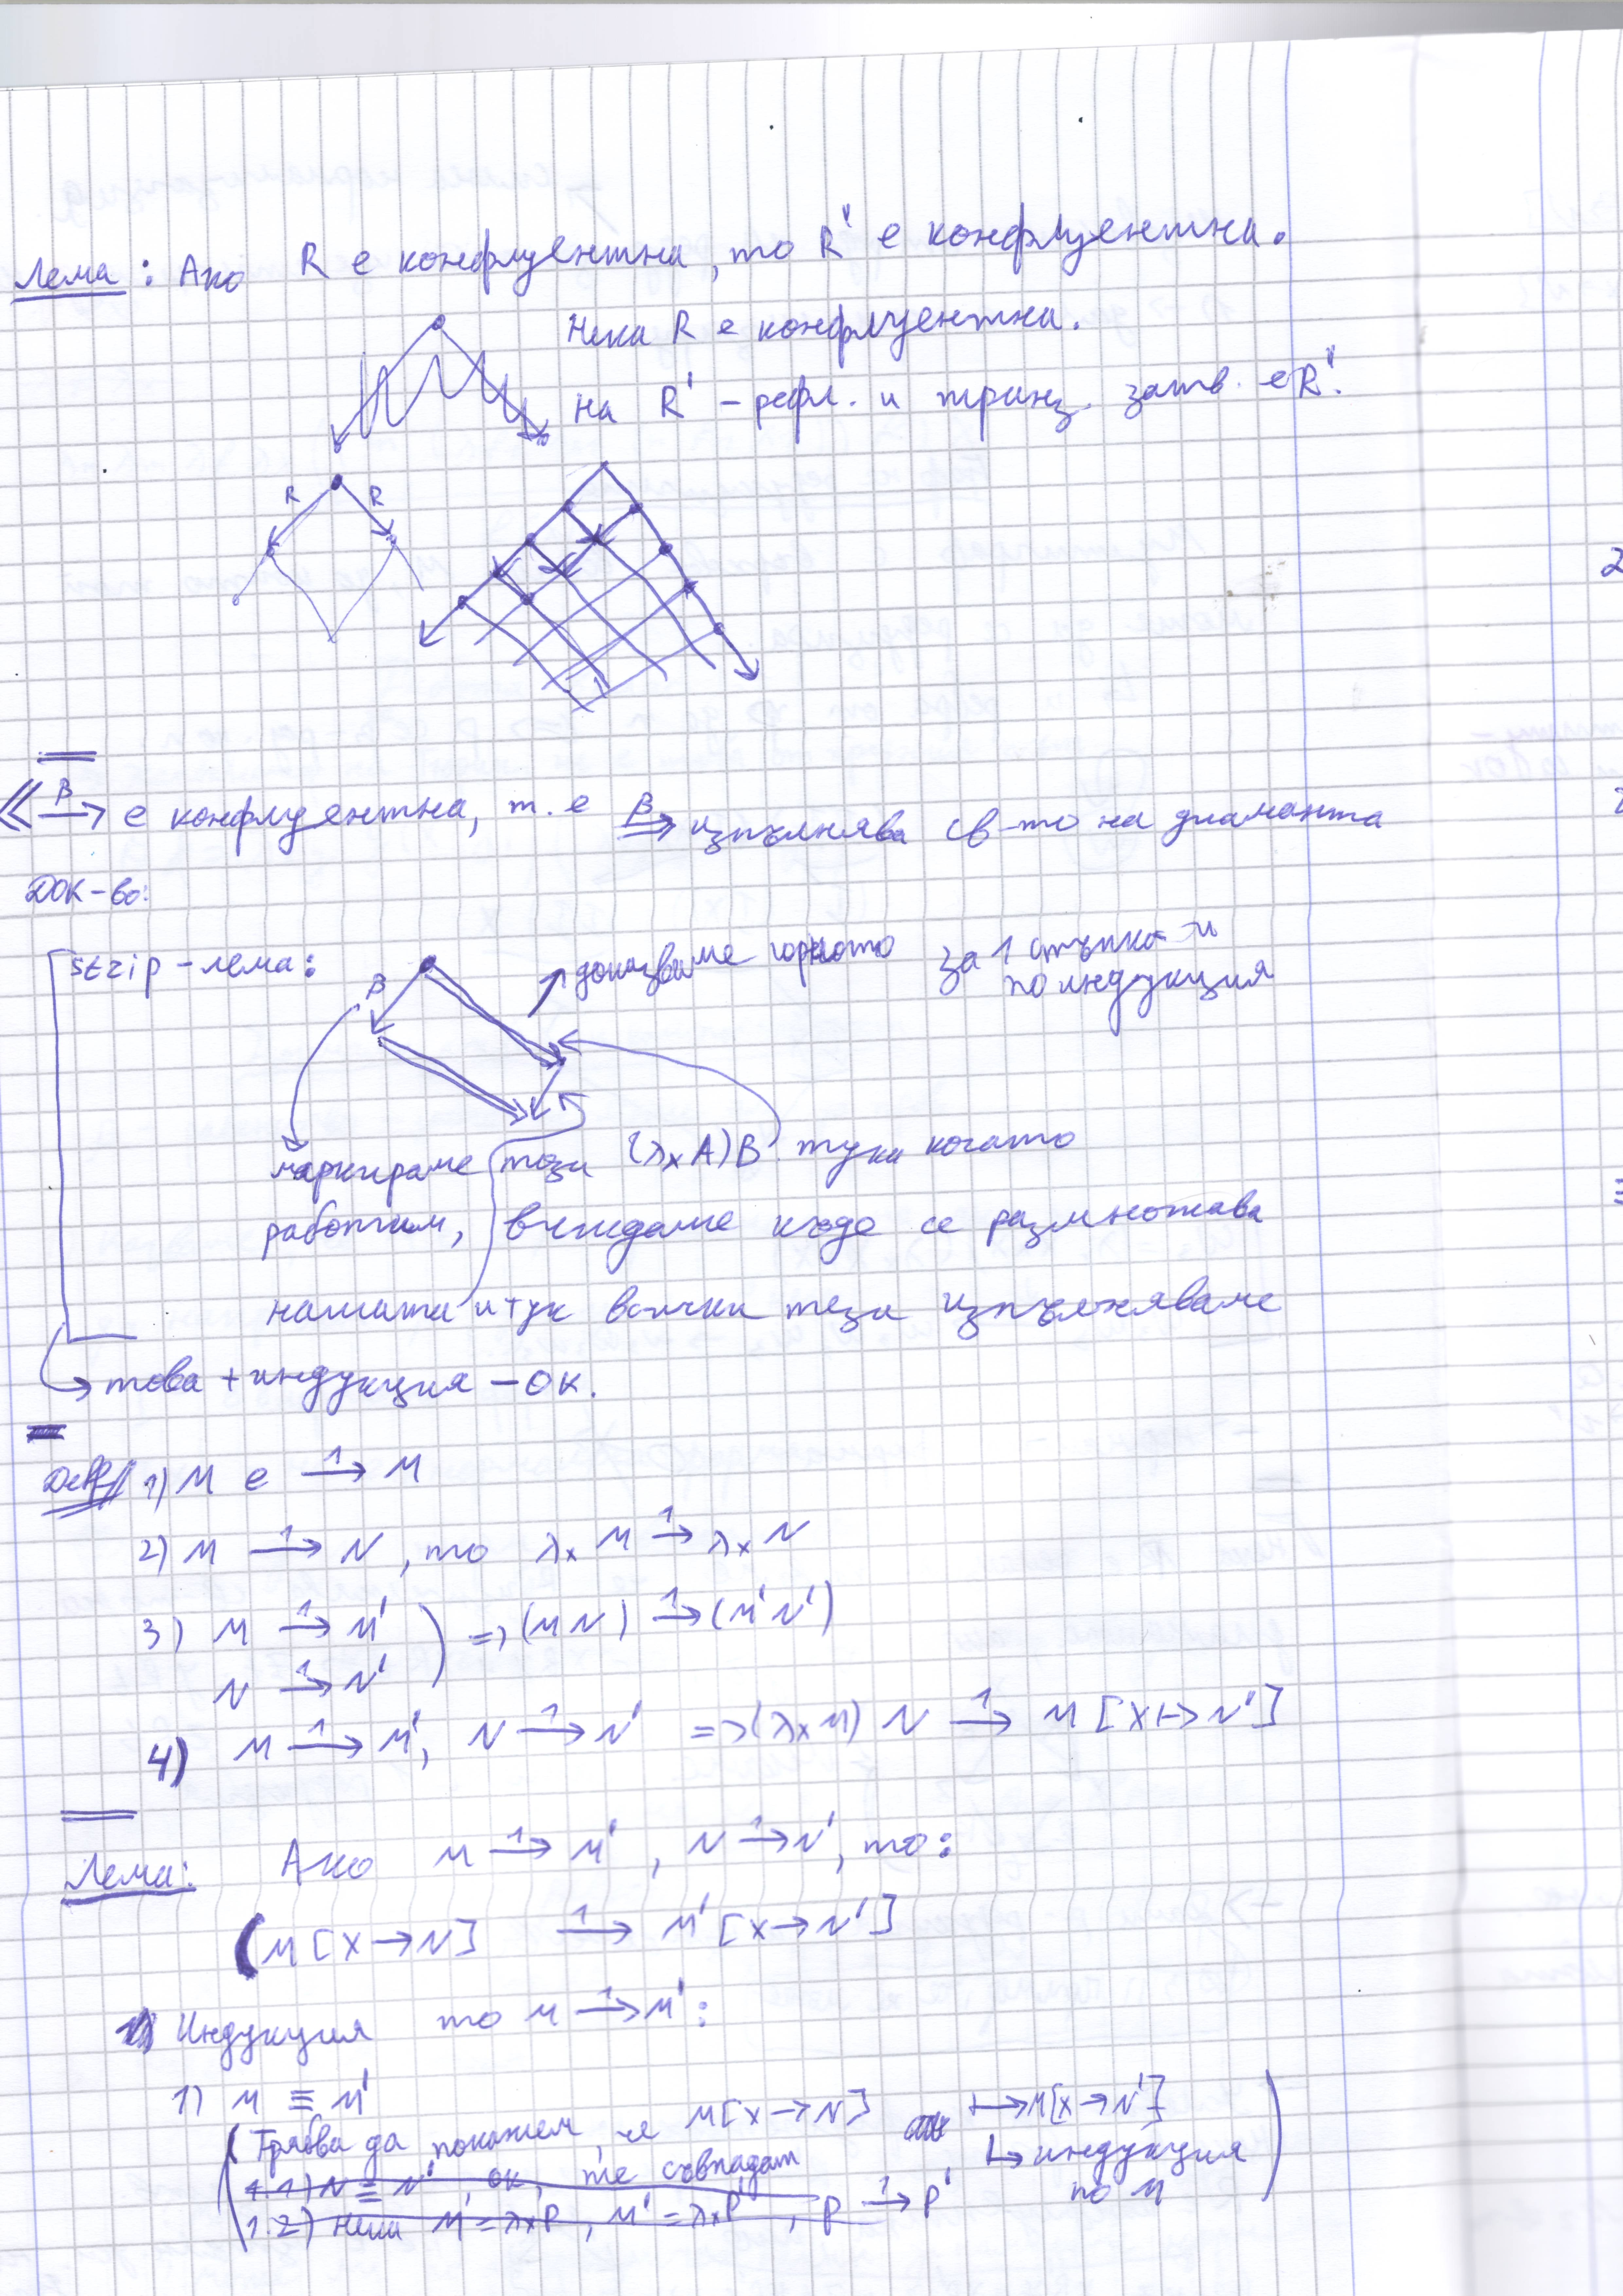 Лема: Ако R е конфлуентна, то R' е конфлуентна.
Нека R е конфлуентна.
На R' - рефл. и транз. затв. е R'.
R R
β→ е конфлуентна, т.е β⇒ изпълнява св-то на диаманта
Док-во:
strip-лема:
β
доказваме горното за 1 стъпка и
по индукция
маркираме този (λx A)B тук когато
работим, виждаме къде се размножава
нашата и тук всички тези изпълняваме
това + индукция - ок.
Деф// 1) M е 1→ M
2) M 1→ N, то λx M 1→ λx N
3) M 1→ M'
N 1→ N' ) => (M N) 1→ (M' N')
4) M 1→ M', N 1→ N' => (λx M) N 1→ M [x ↦ N']
Лема: Ако M 1→ M', N 1→ N', то:
(M [x → N] 1→ M' [x → N']
Индукция по M 1→ M':
1) M ≡ M'
(Трябва да покажем, че M[x → N] ↦ M[x → N']
↳ индукция
по M)
1.1) N ≡ N', ок, те съвпадат
1.2) Нека M = λxP, M' = λxP', P 1→ P'